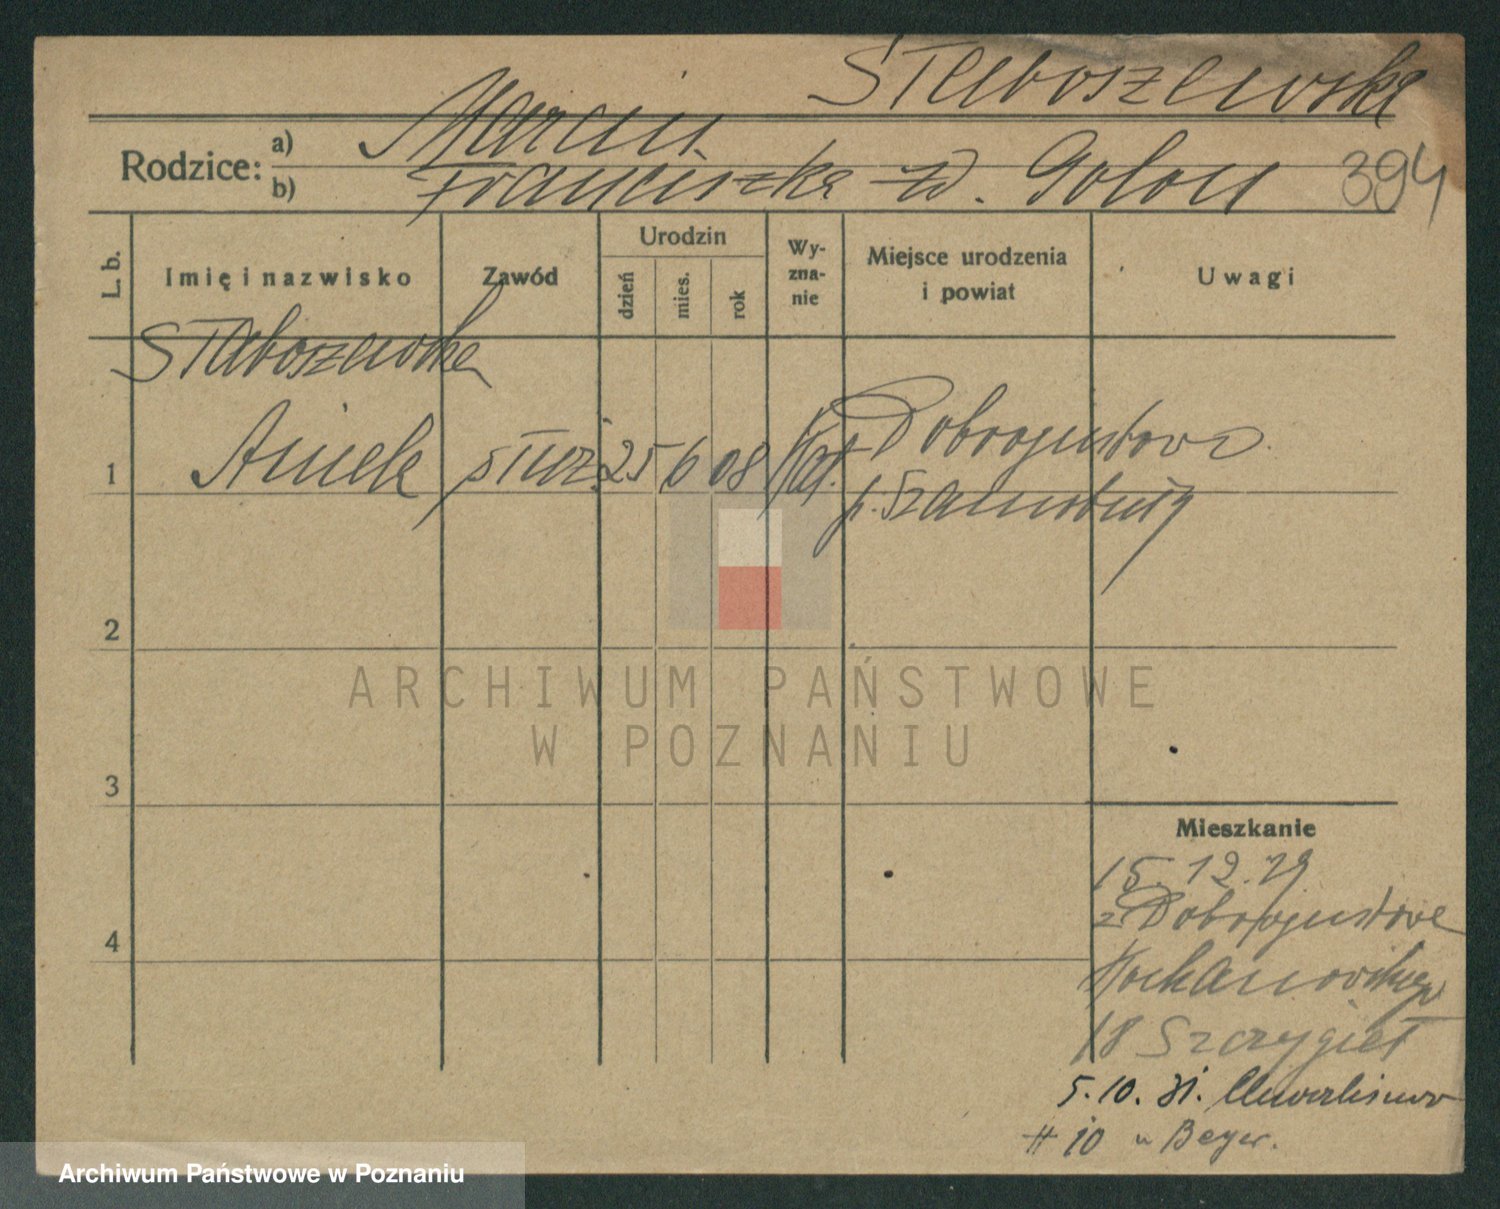 Staboszewska
Rodzice: a) Marcin
b) Franciszka zd. Goloń 394
L. b. Imię i nazwisko Zawód Urodzin dzień mies. rok Wy-zna-nie Miejsce urodzenia i powiat Uwagi
Staboszewska
1 Aniela służ. 25 6 08 kat. Dobrojewo
p. Szamotuły
2
3
4
Mieszkanie
15. 12. 29.
z
Kochanowskiego
18 Szczygieł
5. 10. 31.
10 u Beyer.
ARCHIWUM PAŃSTWOWE
W POZNANIU
Archiwum Państwowe w Poznaniu